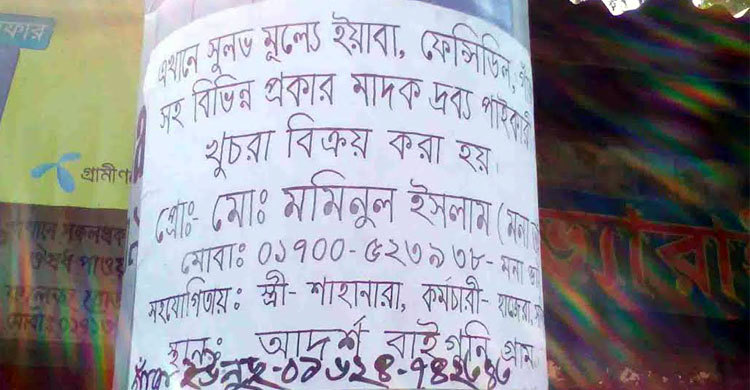 এখানে সুলভ মূল্যে ইয়াবা, ফেন্সিডিল,
সহ বিভিন্ন প্রকার মাদক দ্রব্য পাইকারী
খুচরা বিক্রয় করা হয়।
প্রোঃ- মোঃ মমিনুল ইসলাম (মনা
মোবাঃ ০১৭০০-৫২৩৯৩৮- মনা
সহযোগিতায়ঃ স্ত্রী- শাহানারা, কর্মচারী- হাজেরা,
স্থানঃ আদর্শ বাইগুনি গ্রাম
০১৬২৪-
কার
গ্রামীণ
ঔষধ পাওয়
মোবাঃ ০১৭১৩